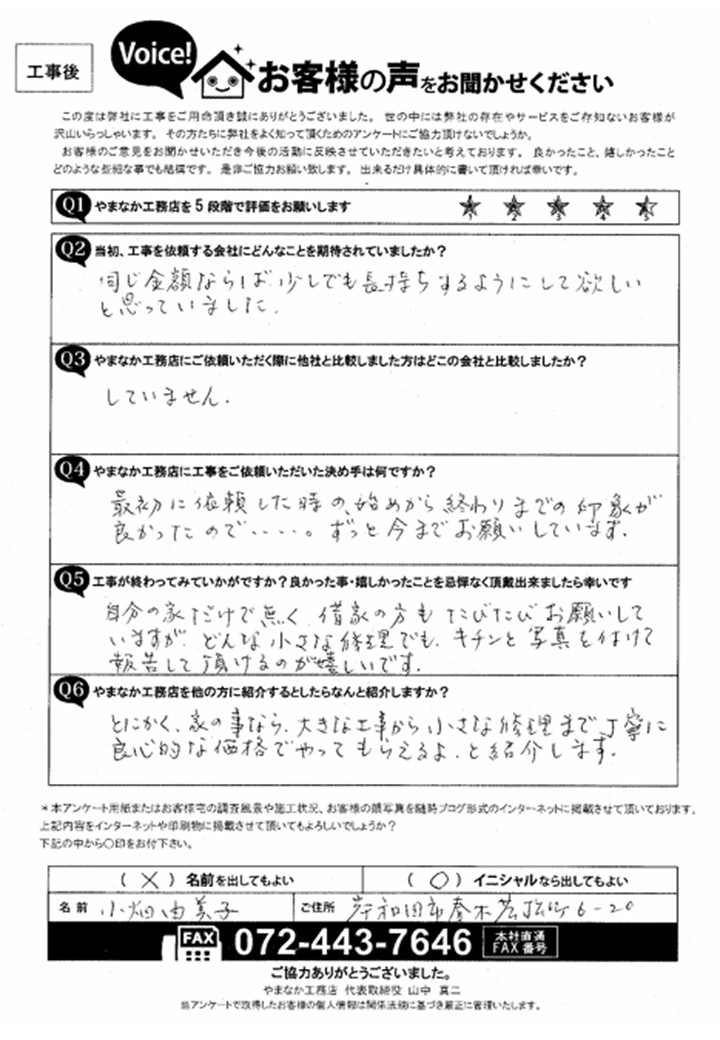 工事後
Voice!
お客様の声をお聞かせください
この度は弊社に工事をご用命頂き誠にありがとうございました。 世の中には弊社の存在やサービスをご存知ないお客様が
沢山いらっしゃいます。 その方たちに弊社をよく知って頂くためのアンケートにご協力頂けないでしょうか。
お客様のご意見をお聞かせいただき今後の活動に反映させていただきたいと考えております。 良かったこと、嬉しかったこと
どのような些細な事でも結構です。 是非ご協力お願い致します。 出来るだけ具体的に書いて頂ければ幸いです。
Q1 やまなか工務店を5段階で評価をお願いします ★ ★ ★ ★ ★
1 2 3 4 5
Q2 当初、工事を依頼する会社にどんなことを期待されていましたか?
同じ金額ならば少しでも長持ちするようにして欲しい
と思っていました.
Q3 やまなか工務店にご依頼いただく際に他社と比較しました方はどこの会社と比較しましたか?
していません.
Q4 やまなか工務店に工事をご依頼いただいた決め手は何ですか?
最初に依頼した時の、始めから終わりまでの印象が
良かったので・・・・・。ずっと今までお願いしています.
Q5 工事が終わってみていかがですか?良かった事・嬉しかったことを忌憚なく頂戴出来ましたら幸いです
自分の家だけで無く、借家の方もたびたびお願いして
いますが、どんな小さな修理でも、キチンと写真を付けて
報告して頂けるのが嬉しいです.
Q6 やまなか工務店を他の方に紹介するとしたらなんと紹介しますか?
とにかく、家の事なら、大きな工事から小さな修理まで丁寧に
良心的な価格でやってもらえるよ、と紹介します.
*本アンケート用紙またはお客様宅の調査風景や施工状況、お客様の顔写真を随時ブログ形式のインターネットに掲載させて頂いております。
上記内容をインターネットや印刷物に掲載させて頂いてもよろしいでしょうか?
下記の中から○印をお付下さい。
(×)名前を出してもよい (○)イニシャルなら出してもよい
名前 小畑由美子 ご住所 岸和田市春木若松町6-20
FAX 072-443-7646 本社直通
FAX番号
ご協力ありがとうございました。
やまなか工務店 代表取締役 山中 真二
当アンケートで取得したお客様の個人情報は関係法規に基づき厳正に管理いたします。